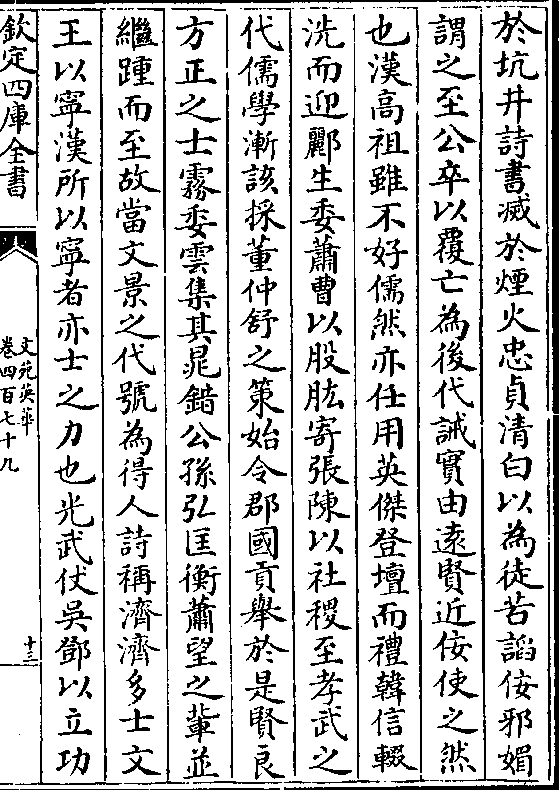 於坑井詩書滅於煙火忠貞清白以為徒苦諂佞邪媚
謂之至公卒以覆亡為後代誡實由遠賢近佞使之然
也漢高祖雖不好儒然亦仕用英傑登壇而禮韓信輟
洗而迎酈生委蕭曹以股肱寄張陳以社稷至孝武之
代儒學漸該採董仲舒之策始令郡國貢舉於是賢良
方正之士霧委雲集其晁錯公孫弘匡衡蕭望之輩並
繼踵而至故當文景之代號為得人詩稱濟濟多士文
王以寧漢所以寧者亦士之力也光武仗吳鄧以立功
欽定四庫全書
文苑英華
卷四百七十九
十三